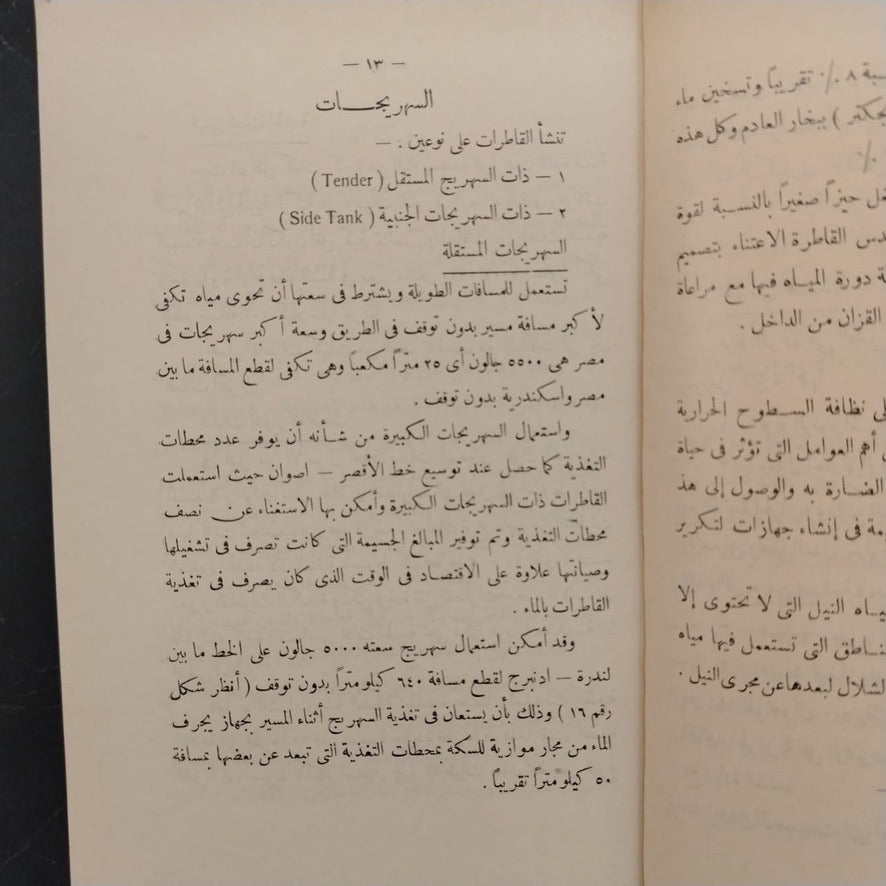 — ١٣ —
السهريجـــات
تنشأ القاطرات على نوعين : —
١ — ذات السهريج المستقل ( Tender )
٢ — ذات السهريجات الجنبية ( Side Tank )
السهريجات المستقلة
تستعمل للمسافات الطويلة ويشترط فى سعتها أن تحوى مياه تكفى
لأكبر مسافة مسير بدون توقف فى الطريق وسعة أكبر سهريجات فى
مصر هى ٥٥٠٠ جالون أى ٢٥ متراً مكعباً وهى تكفى لقطع المسافة ما بين
مصر واسكندرية بدون توقف .
واستعمال السهريجات الكبيرة من شأنه أن يوفر عدد محطات
التغذية كما حصل عند توسيع خط الأقصر — اصوان حيث استعملت
القاطرات ذات السهريجات الكبيرة وأمكن بها الاستغناء عن نصف
محطات التغذية وتم توفير المبالغ الجسيمة التى كانت تصرف فى تشغيلها
وصيانتها علاوة على الاقتصاد فى الوقت الذى كان يصرف فى تغذية
القاطرات بالماء .
وقد أمكن استعمال سهريج سعته ٥٠٠٠ جالون على الخط ما بين
لندرة — ادنبرج لقطع مسافة ٦٤٠ كيلو متراً بدون توقف ( أنظر شكل
رقم ١٦ ) وذلك بأن يستعان فى تغذية السهريج أثناء المسير بجهاز يجرف
الماء من مجار موازية للسكة بمحطات التغذية التى تبعد عن بعضها بمسافة
٥٠ كيلو متراً تقريباً .
٨ ٪ تقريباً وتسخين ماء
) ببخار العادم وكل هذه
٪
حيزاً صغيراً بالنسبة لقوة
القاطرة الاعتناء بتصميم
دورة المياه فيها مع مراعاة
القزان من الداخل .
نظافة السطوح الحرارية
أهم العوامل التى تؤثر فى حياة
الضارة به والوصول إلى هذ
فى إنشاء جهازات لتكرير
النيل التى لا تحتوى إلا
التى تستعمل فيها مياه
لبعدها عن مجرى النيل .